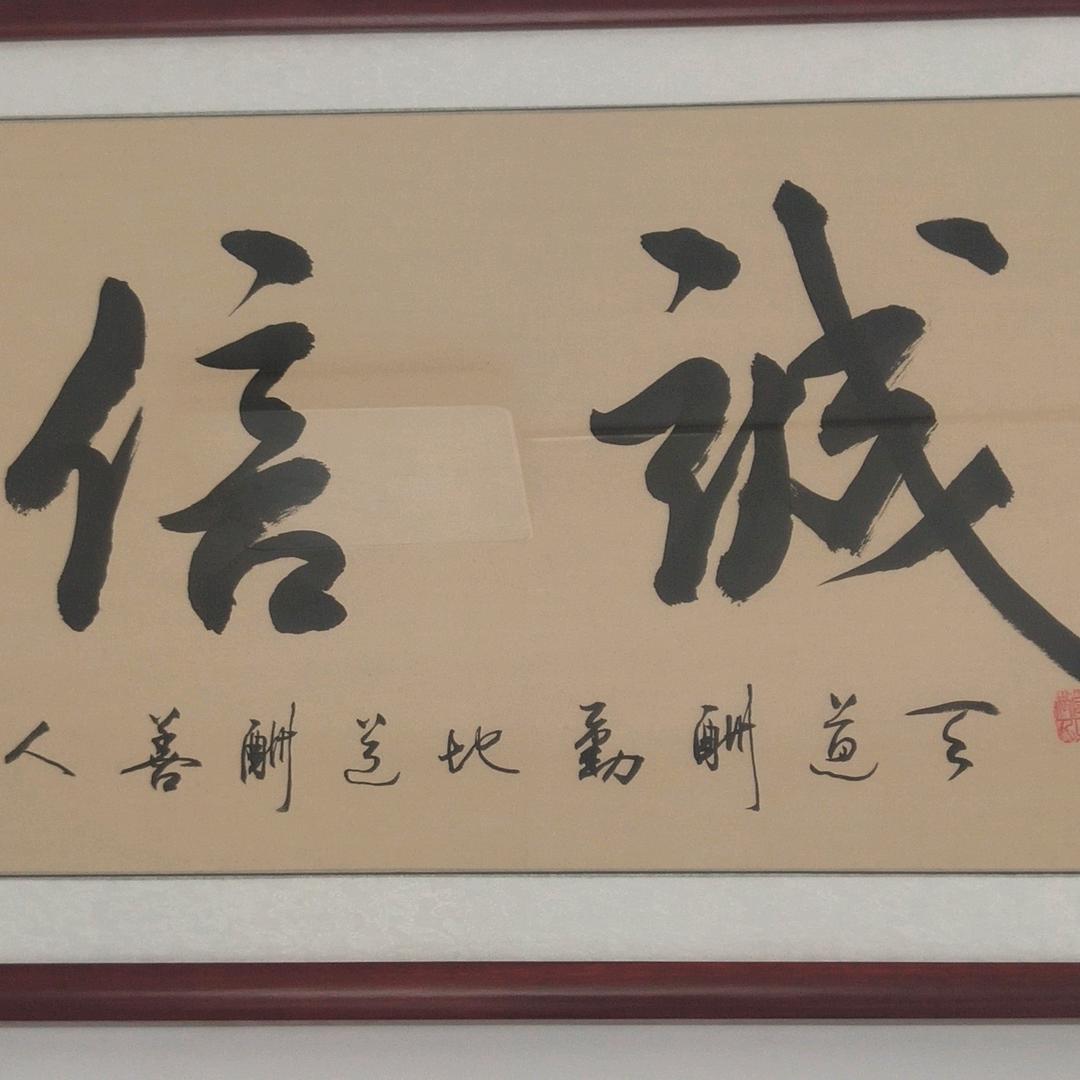 誠信
天道酬勤地道酬善人